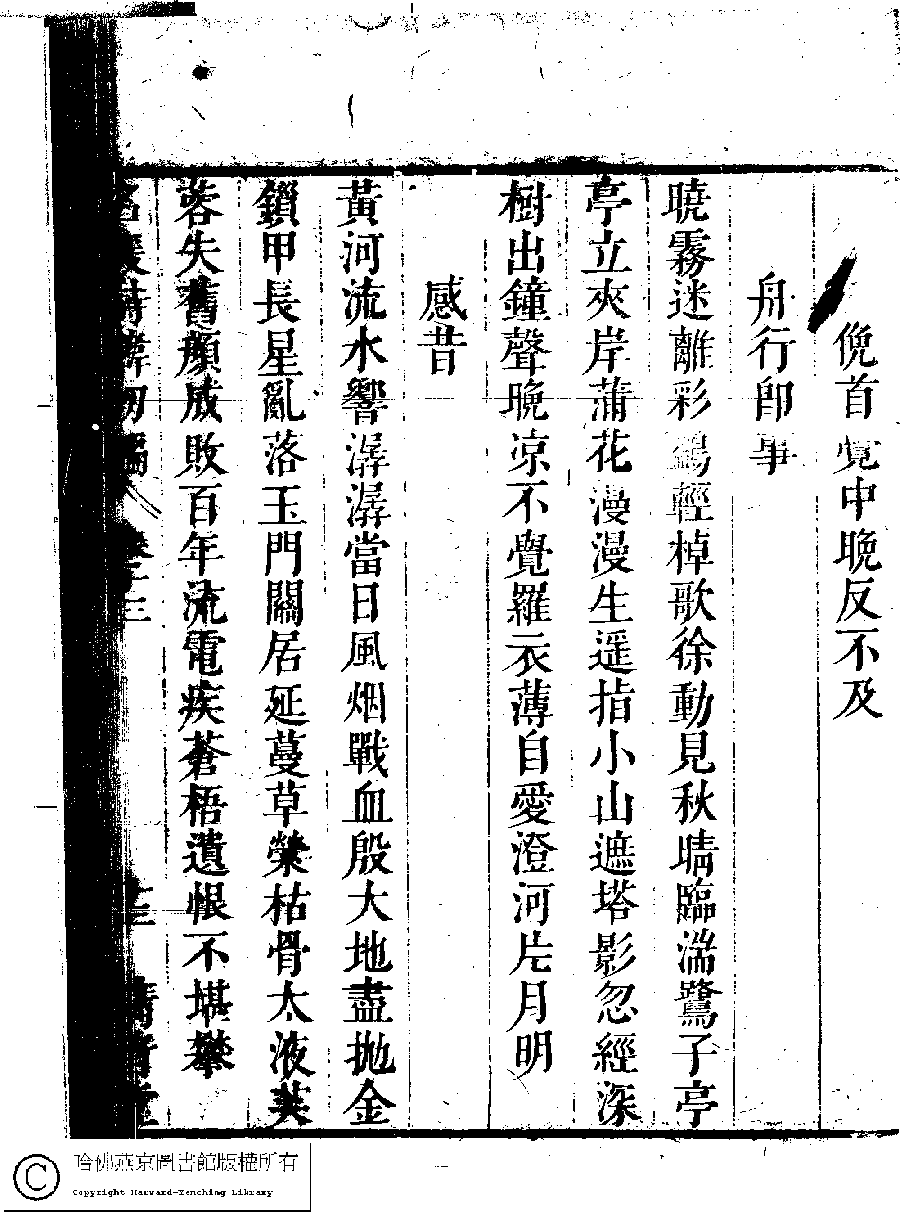 俛首甕中晚反不及
舟行即事
曉霧迷離彩鷁輕棹歌徐動見秋晴臨湍鷺子亭
亭立夾岸蒲花漫漫生遥指小山遮塔影忽經深
樹出鐘聲晚凉不覺羅衣薄自愛澄河片月明
感昔
黃河流水響潺潺當日風烟戰血殷大地盡抛金
鎖甲長星亂落玉門關居延蔓草縈枯骨太液芙
蓉失舊顏成敗百年流電疾蒼梧遺恨不堪攀
名媛詩緯初編 卷十三 十三 清音堂
哈佛燕京圖書館版權所有
Copyright Harvard-Yenching Library